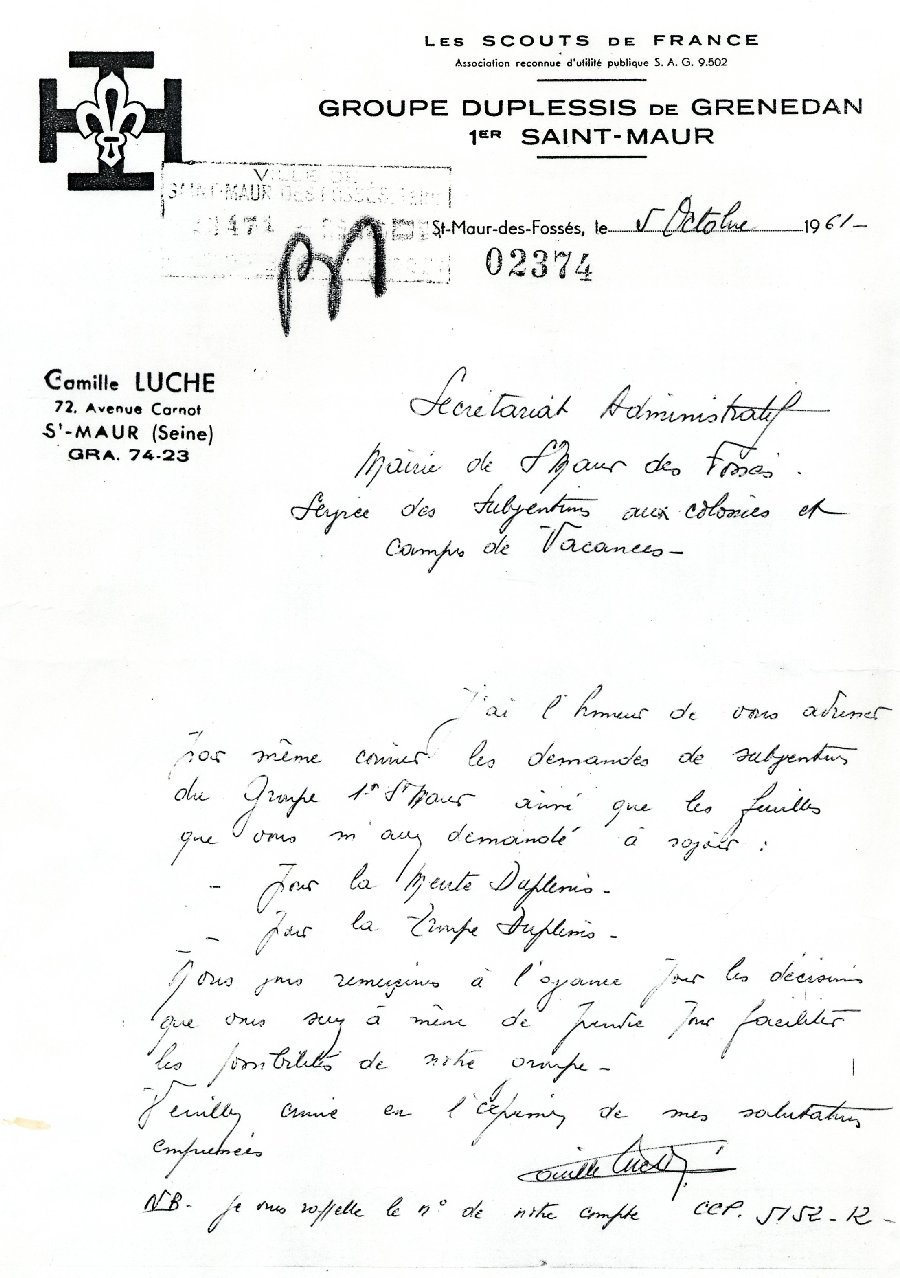 LES SCOUTS DE FRANCE
Association reconnue d'utilité publique S. A. G. 9.502
GROUPE DUPLESSIS DE GRENEDAN
1ER SAINT-MAUR
VILLE DE
SAINT-MAUR DES FOSSÉS
St-Maur-des-Fossés, le 5 Octobre 1961-
02374
Camille LUCHE
72, Avenue Carnot
St-MAUR (Seine)
GRA. 74-23
Secrétariat Administratif
Mairie de St Maur des Fossés.
Service des Subventions aux colonies et
Camps de Vacances-
J'ai l'honneur de vous adresser
par même courrier les demandes de subventions
du Groupe 1er St Maur ainsi que les feuilles
que vous m'avez demandé à savoir :
- Pour la Meute Duplessis-
- Pour la Troupe Duplessis-
Nous vous remercions à l'avance pour les décisions
que vous serez à même de prendre pour faciliter
les possibilités de notre groupe-
Veuillez croire en l'expression de mes salutations
empressées
Camille Luche
NB- Je vous rappelle le n° de notre compte CCP. 5152-12-